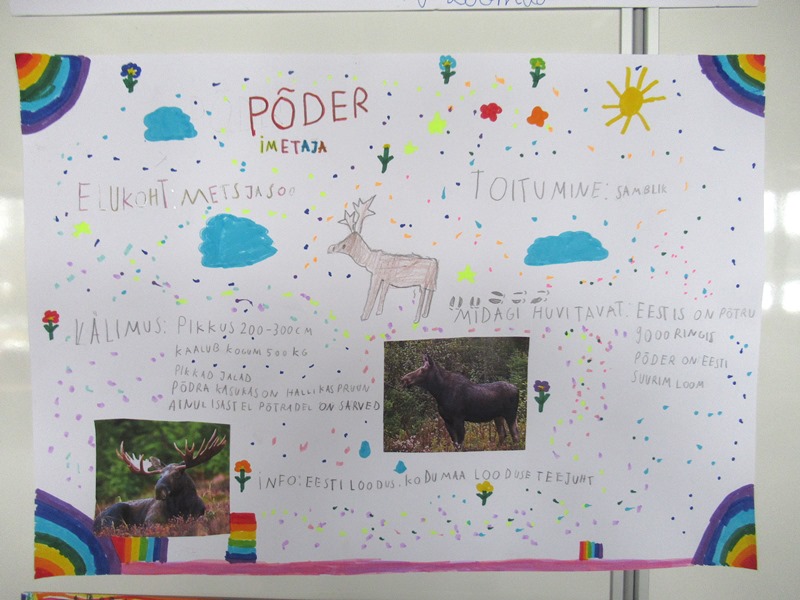 PÕDER
IMETAJA
ELUKOHT: METS JA SOO
TOITUMINE: SAMBLIK
VÄLIMUS: PIKKUS 200-300 CM
KAALUB KOGUM 500 KG
PIKKAD JALAD
PÕDRA KASUKAS ON HALLIKAS PRUUN
AINUL ISASTEL PÕTRADEL ON SARVED
MIDAGI HUVITAVAT: EESTIS ON PÕTRU
9000 RINGIS
PÕDER ON EESTI
SUURIM LOOM
INFO: EESTI LOODUS. KODUMAA LOODUSE TEEJUHT